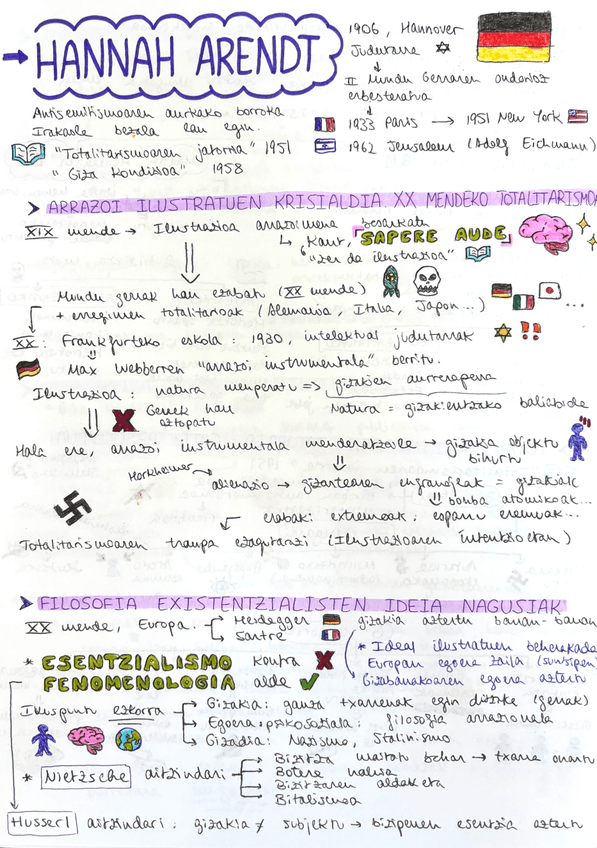 → HANNAH ARENDT
1906, Hannover
Judutarra
II Mundu Gerraren ondorioz
erbesteratua
1933 Paris → 1951 New York
1962 Jerusalem (Adolf Eichmann)
Antisemitismoaren aurkako borroka
Irakasle bezala lan egin.
"Totalitarismoaren jatorria" 1951
"Giza Kondizioa" 1958
➤ ARRAZOI ILUSTRATUEN KRISIALDIA XX MENDEKO TOTALITARISMOA
XIX mende → Ilustrazioa arrazoimena besarkatu
↳ Kant, "SAPERE AUDE"
"Zer da ilustrazioa"
Mundu gerrak hau ezabatu (XX mende)
+ erregimen totalitarioak (Alemania, Italia, Japon...) ...
XX: Frankfurteko eskola: 1930, intelektual judutarrak !!
Max Webberren "arrazoi instrumentala" berritu.
Ilustrazioa: natura menperatu => gizakien aurrerapena
Natura = gizakientzako baliabide
X Gerrek hau oztopatu
Hala ere, arrazoi instrumentala menderatzaile → gizakia objektu
bihurtu
Horkheimer → alienazio → gizartearen engranajeak = gizakiak
bonba atomikoak...
erabaki extremoak: esparru eremuak...
Totalitarismoaren tranpa ezagutarazi (Ilustrazioaren intentzioetan)
➤ FILOSOFIA EXISTENTZIALISTEN IDEIA NAGUSIAK
XX mende, Europa. Heidegger gizakia aztertu banan-banan
Sartre
* Ideal ilustratuen beherakada
* ESENTZIALISMO kontra X
Europan egoera zaila
FENOMENOLOGIA alde ✓
Gizabanakoaren egoera aztertu
Ikuspuntu ezkorra → Gizakia: gauza txarrenak egin ditzke (gerrak)
→ Egoera psikosoziala: filosofia arrazionala
→ Gizadia: Nazismo, Stalinismo
* Nietzsche aitzindari → Bizitza maitatu behar → txarra onartu
→ Botere nahia
→ Bizitzaren aldaketa
→ Bitalismoa
Husserl aitzindari: gizakia ≠ subjektu → bizipenen esentzia aztertu